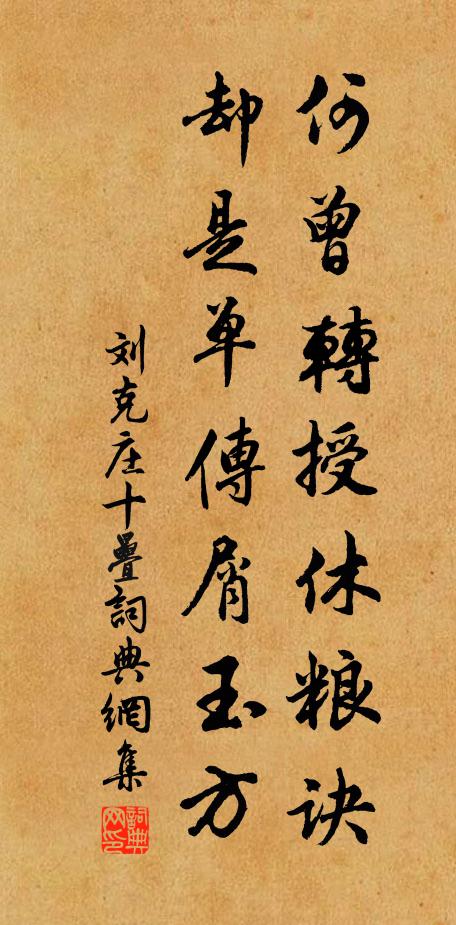 何曾轉授休粮诀
却是单傳屑玉方
刘克庄十疊詞典網集
詞典网印